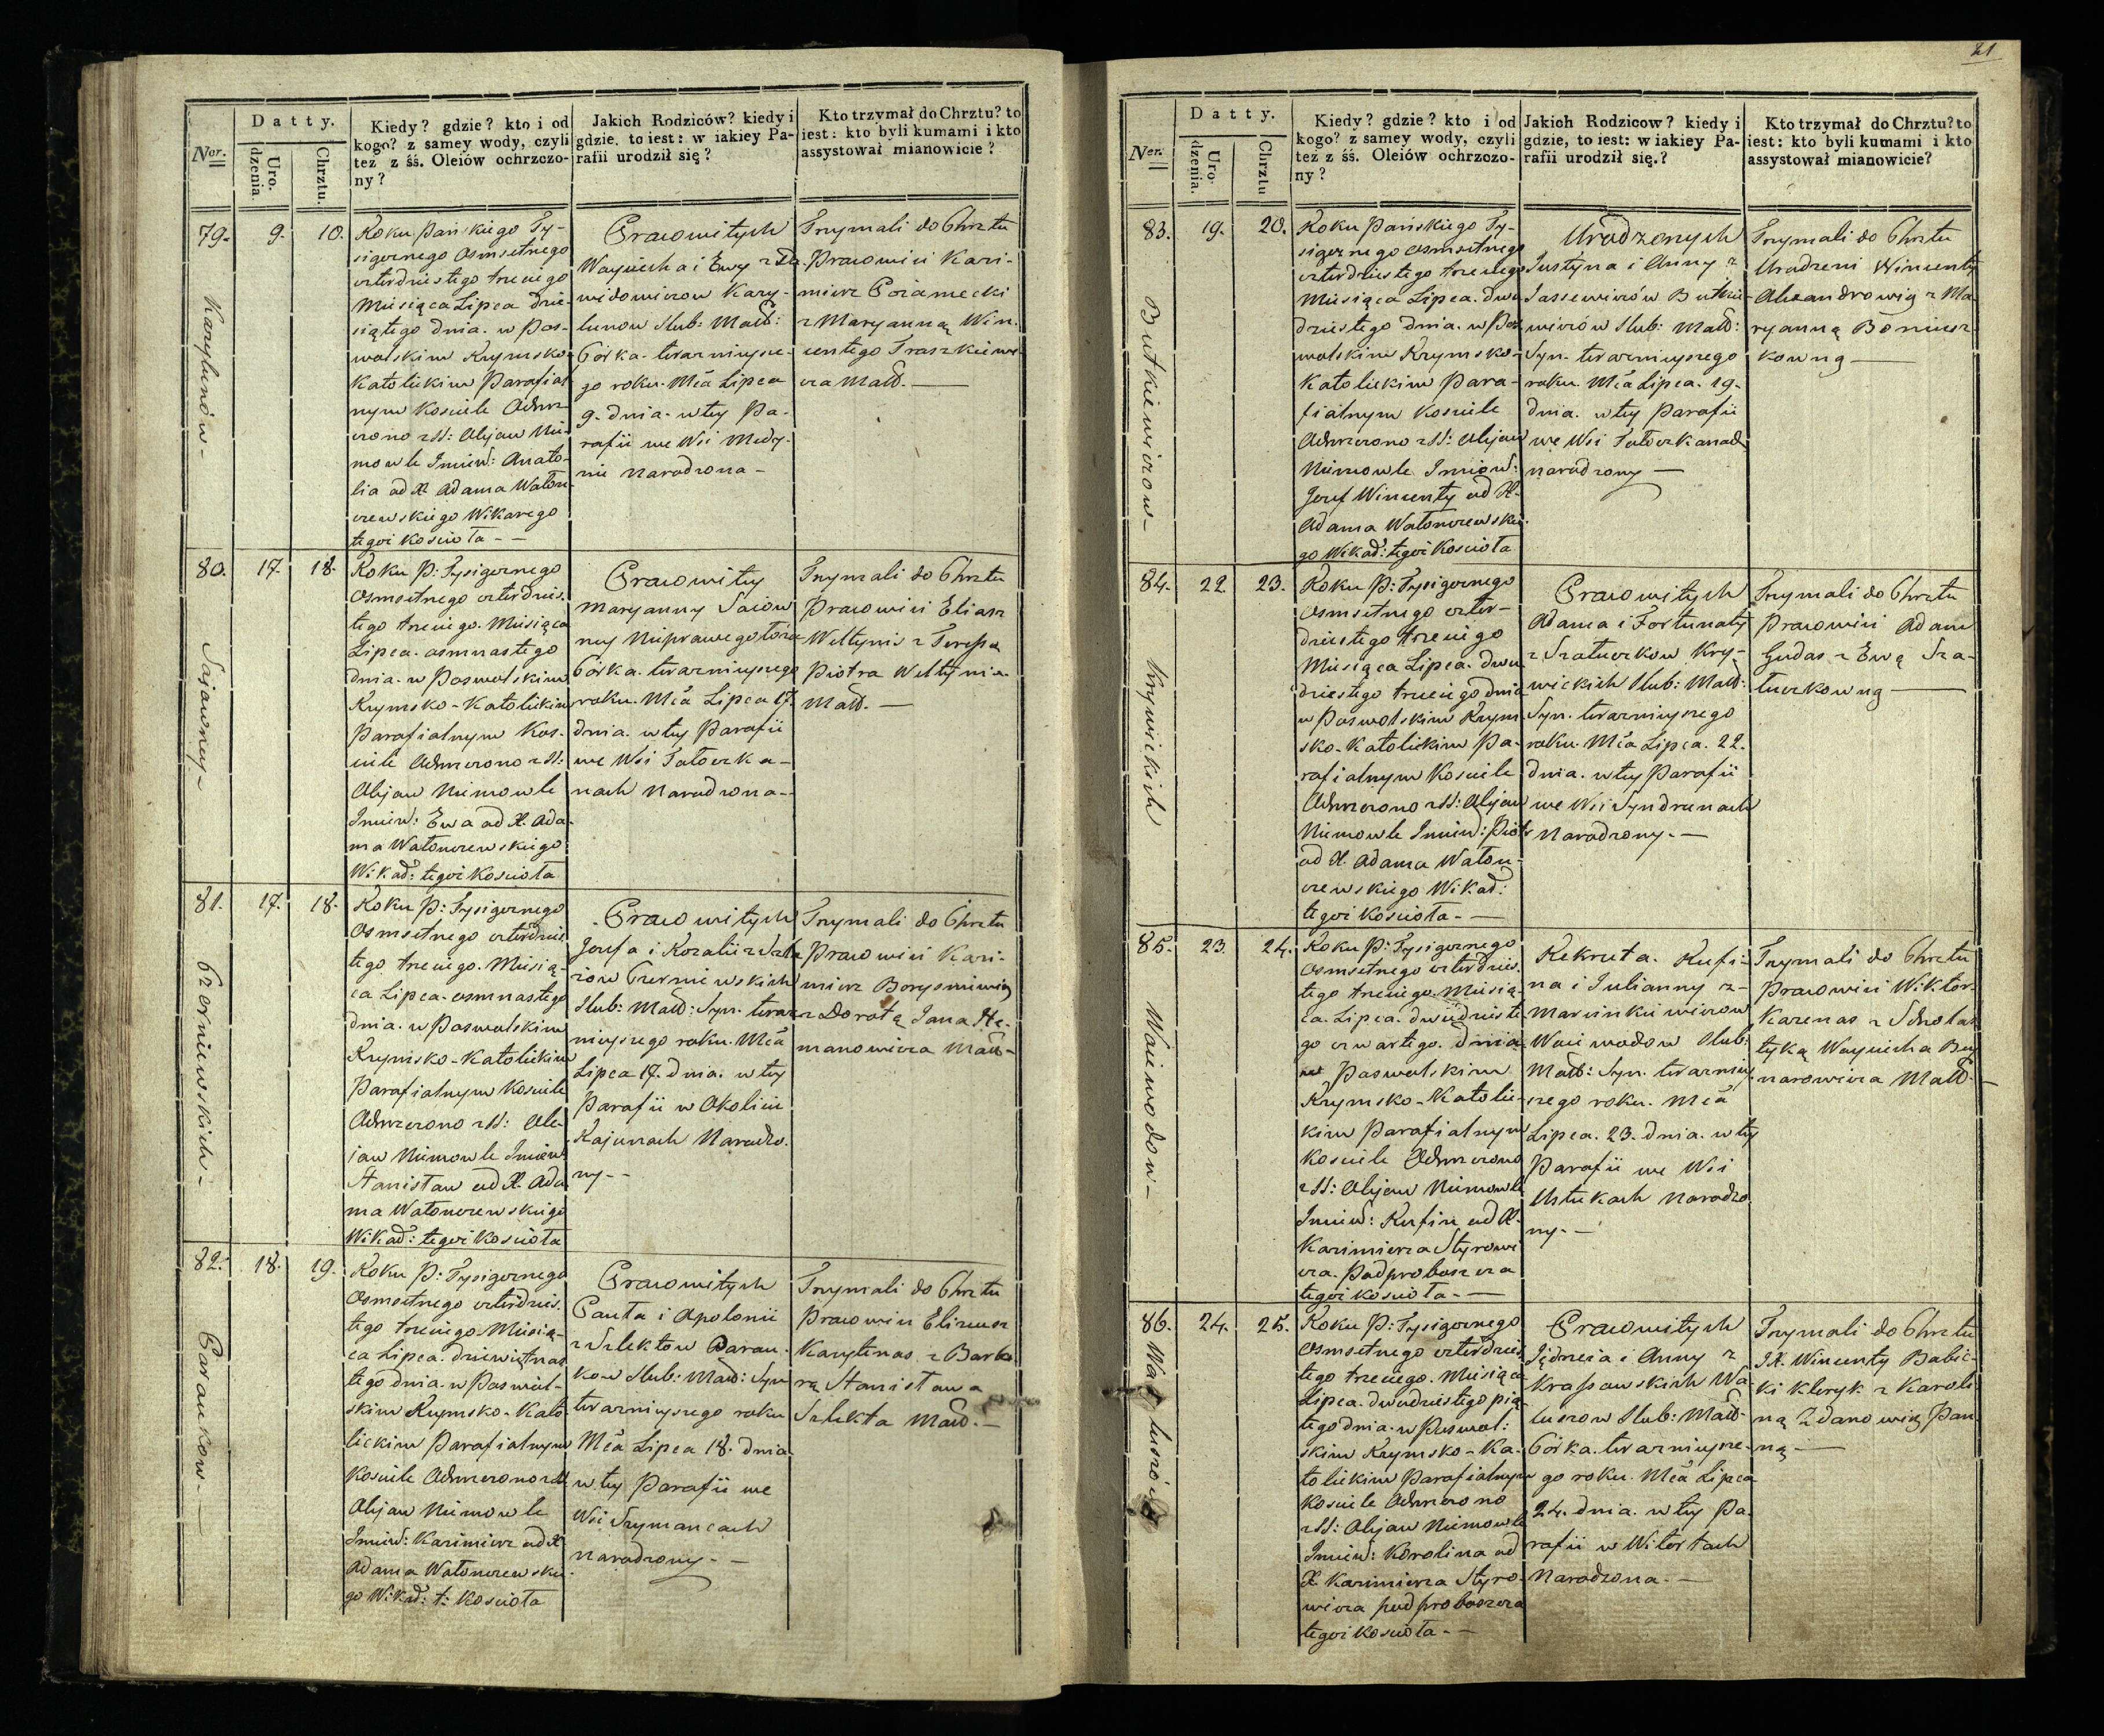 21
Ner.
Datty.
Uro.
dzenia.
Chrztu.
Kiedy? gdzie? kto i od
kogo? z samey wody, czyli
też z śś. Oleiów ochrzczo-
ny?
Jakich Rodziców? kiedy i
gdzie, to iest: w iakiey Pa-
rafii urodził się?
Kto trzymał do Chrztu? to
iest: kto byli kumami i kto
assystował mianowicie?
79.
Karylunów-
9.
10.
Roku Pańskiego Ty-
siącznego Osmsetnego
czterdziestego trzeciego
Miesiąca Lipca dzie-
siątego dnia. w Pos-
wolskim Rzymsko-
Katolickim Parafial
nym Kosciele Ochrz-
czono z SS: Olejow Nie-
mowle Imien: Anato-
lia od X. Adama Waton-
czewskiego Wikarego
tegoż Kościoła - -
Pracowitych
Woyciecha i Ewy z Da
widowiczow Kary-
lunow Slub: Małż:
Córka. teraznieysze-
go roku. Mca Lipca
9. dnia. w tey Pa-
rafii we Wsi Medy-
nie Narodzona -
Trzymali do Chrztu
Pracowici Kazi-
mierz
z Maryanną Win-
centego Traszkiewi-
cza Małż. -
80.
Sajowney-
17.
18.
Roku P: Tysiącznego
Osmsetnego czterdzies-
tego trzeciego. Miesiąca
Lipca. osmnastego
dnia. w Poswolskim
Rzymsko-Katolickim
Parafialnym Kos-
ciele Ochrzczono z SS:
Olejow Niemowle
Imien: Ewa od X. Ada-
ma Watonczewskiego
Wikar: tegoż Kościoła
Pracowitey
Maryanny Saiow
ney Nieprawego łoża
Córka. teraznieyszego
roku. Mca Lipca 17.
dnia. w tey Parafii
we Wsi Tatocka-
nach Narodzona -
Trzymali do Chrztu
Pracowici Eliasz
Weltynis z Teressą
Piotra Weltynia
Małż. -
81.
Czerniewskich-
17.
18.
Roku P: Tysiącznego
Osmsetnego czterdzies
tego trzeciego. Miesią-
ca Lipca. osmnastego
dnia. w Poswolskim
Rzymsko-Katolickim
Parafialnym Kosciele
Ochrzczono z SS: Ole-
jow Niemowle Imien:
Stanisław od X. Ada
ma Watonczewskiego
Wikar: tegoż Kościoła
Pracowitych
Jozefa i Rozalii z
Czerniewskich
Slub: Małż: Syn. teraz-
nieyszego roku. Mca
Lipca 17. dnia. w tey
Parafii w Okolicie
Kajunach Narodzo-
ny - -
Trzymali do Chrztu
Pracowici Kazi-
mierz Borysewicz
z Dorotą Jana He-
manowicza Małż -
82.
Baraukow-
18.
19.
Roku P: Tysiącznego
Osmsetnego czterdzies-
tego trzeciego. Miesią-
ca Lipca. dziewiętnas
tego dnia. w Poswol-
skim Rzymsko-Kato-
lickim Parafialnym
Kosciele Ochrzczono z SS
Olejow Niemowle
Imien: Kazimierz od X
Adama Watonczewskie
go Wikar: t: Kościoła
Pracowitych
Pawła i Apolonii
z Szlektow Barau-
kow Slub: Małż: Syn
teraznieyszego roku
Mca Lipca 18. dnia
w tey Parafii we
Wsi Szymancach
narodzony - -
Trzymali do Chrztu
Pracowici
Karytenas z Barba
rą Stanisława
Szlekta Małż. -
Ner.
Datty.
Uro.
dzenia.
Chrztu
Kiedy? gdzie? kto i od
kogo? z samey wody, czyli
też z śś. Oleiów ochrzczo-
ny?
Jakich Rodzicow? kiedy i
gdzie, to iest: w iakiey Pa-
rafii urodził się.?
Kto trzymał do Chrztu? to
iest: kto byli kumami i kto
assystował mianowicie?
83.
Butkiewiczow-
19.
20.
Roku Pańskiego Ty-
siącznego osmsetnego
czterdziestego trzeciego
Miesiąca Lipca. dwu
dziestego dnia. w Pos
wolskim Rzymsko-
Katolickim Para-
fialnym Kosciele
Ochrzczono z SS: Olejow
Niemowle Imion:
Jozef Wincenty od X.
Adama Watonczewskie-
go Wikar: tegoż Kościoła
Urodzonych
Justyna i Anny z
Jassewiczów Butkie-
wiczów Slub: Małż:
Syn. teraznieyszego
roku. Mca Lipca. 19.
dnia. w tey Parafii
we Wsi Tatockanach
narodzony -
Trzymali do Chrztu
Urodzeni Wincenty
Alexandrowicz z Ma
ryanną Boniusz-
kowną -
84.
Krywickich
22.
23.
Roku P: Tysiącznego
Osmsetnego czter-
dziestego trzeciego
Miesiąca Lipca. dwu
dziestego trzeciego dnia
w Poswolskim Rzym-
sko-Katolickim Pa-
rafialnym Kosciele
Ochrzczono z SS: Olejow
Niemowle Imien: Piotr
od X. Adama Waton-
czewskiego Wikar:
tegoż Kościoła - -
Pracowitych
Adama i Fortunaty
z Szatuczkow Kry-
wickich Slub: Małż:
Syn. teraznieyszego
roku. Mca Lipca. 22.
dnia. w tey Parafii
we Wsi Syndrunach
Narodzony. -
Trzymali do Chrztu
Pracowici Adam
Gudas z Ewą Sza-
tuczkowną -
85.
Woiewodow-
23.
24.
Roku P: Tysiącznego
Osmsetnego czterdzies-
tego trzeciego. Miesią-
ca. Lipca. dwudzieste
go czwartego. dnia
w Poswolskim
Rzymsko-Katolic-
kim Parafialnym
Kosciele Ochrzczono
z SS: Olejow Niemowle
Imien: Rufin od X.
Kazimierza Styrowi
cza. Podproboszcza
tegoż Kościoła - -
Rekruta. Rufi-
na i Julianny z
Marcinkiewiczow
Woiewodow Slub:
Małż: Syn. terazniey-
szego roku. Mca
Lipca. 23. dnia. w tey
Parafii we Wsi
Ustukach Narodzo
ny. -
Trzymali do Chrztu
Pracowici Wiktor
Karenas z Scholas
tyką Woyciecha
Małż. -
86.
24.
25.
Roku P: Tysiącznego
Osmsetnego czterdzies
tego trzeciego. Miesiąca
Lipca. dwudziestego pią-
tego dnia. w Poswol-
skim Rzymsko-Ka-
tolickim Parafialnym
Kosciele Ochrzczono
z SS: Olejow Niemowle
Imien: Karolina od
X. Kazimierza Styro-
wicza podproboszcza
tegoż Kościoła - -
Pracowitych
Jędrzeia i Anny z
Krassowskich Wa-
luszow Slub: Małż:
Córka. teraznieysze-
go roku. Mca Lipca
24. dnia. w tey Pa-
rafii w Witortach
Narodzona. -
Trzymali do Chrztu
JX. Wincenty Babic-
ki Kleryk z Karoli
ną Zdanowicz Pan
ną -